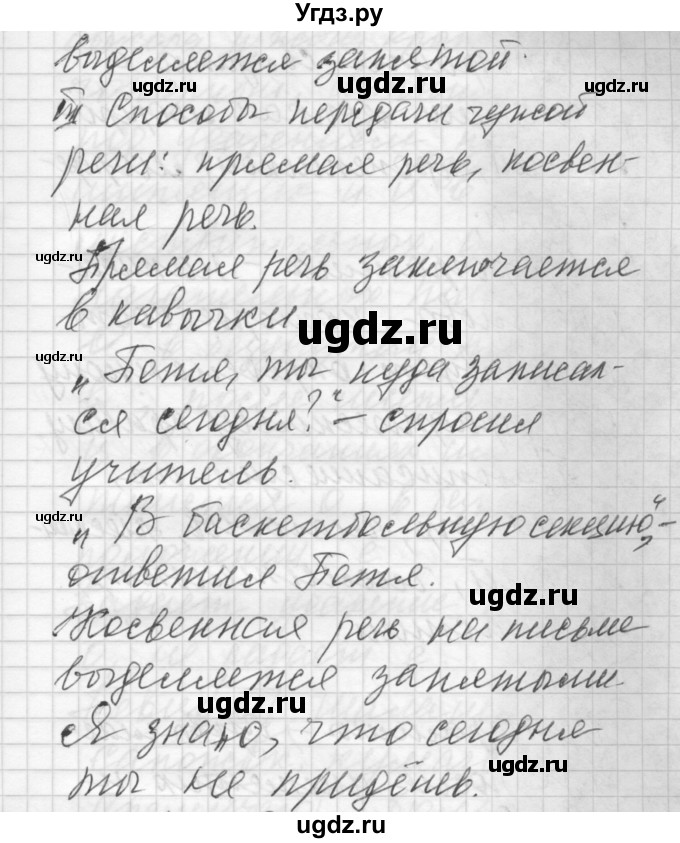 Угдз.ру
выделяется запятой.
Способы передачи чужой
речи: прямая речь, косвен-
ная речь.
Прямая речь заключается
в кавычки
„Петя, ты куда записал-
ся сегодня?“ – спросил
учитель.
„В баскетбольную секцию“, –
ответил Петя.
Косвенная речь на письме
выделяется запятыми.
Я знаю, что сегодня
ты не придёшь.
ugdz.ru
ugdz.ru
ugdz.ru
ugdz.ru
ugdz.ru
ugdz.ru
ugdz.ru
ugdz.ru
ugdz.ru
ugdz.ru
ugdz.ru
ugdz.ru